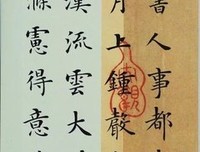 書人事都
月上鍾聲
溪流雲大
滌慮得意